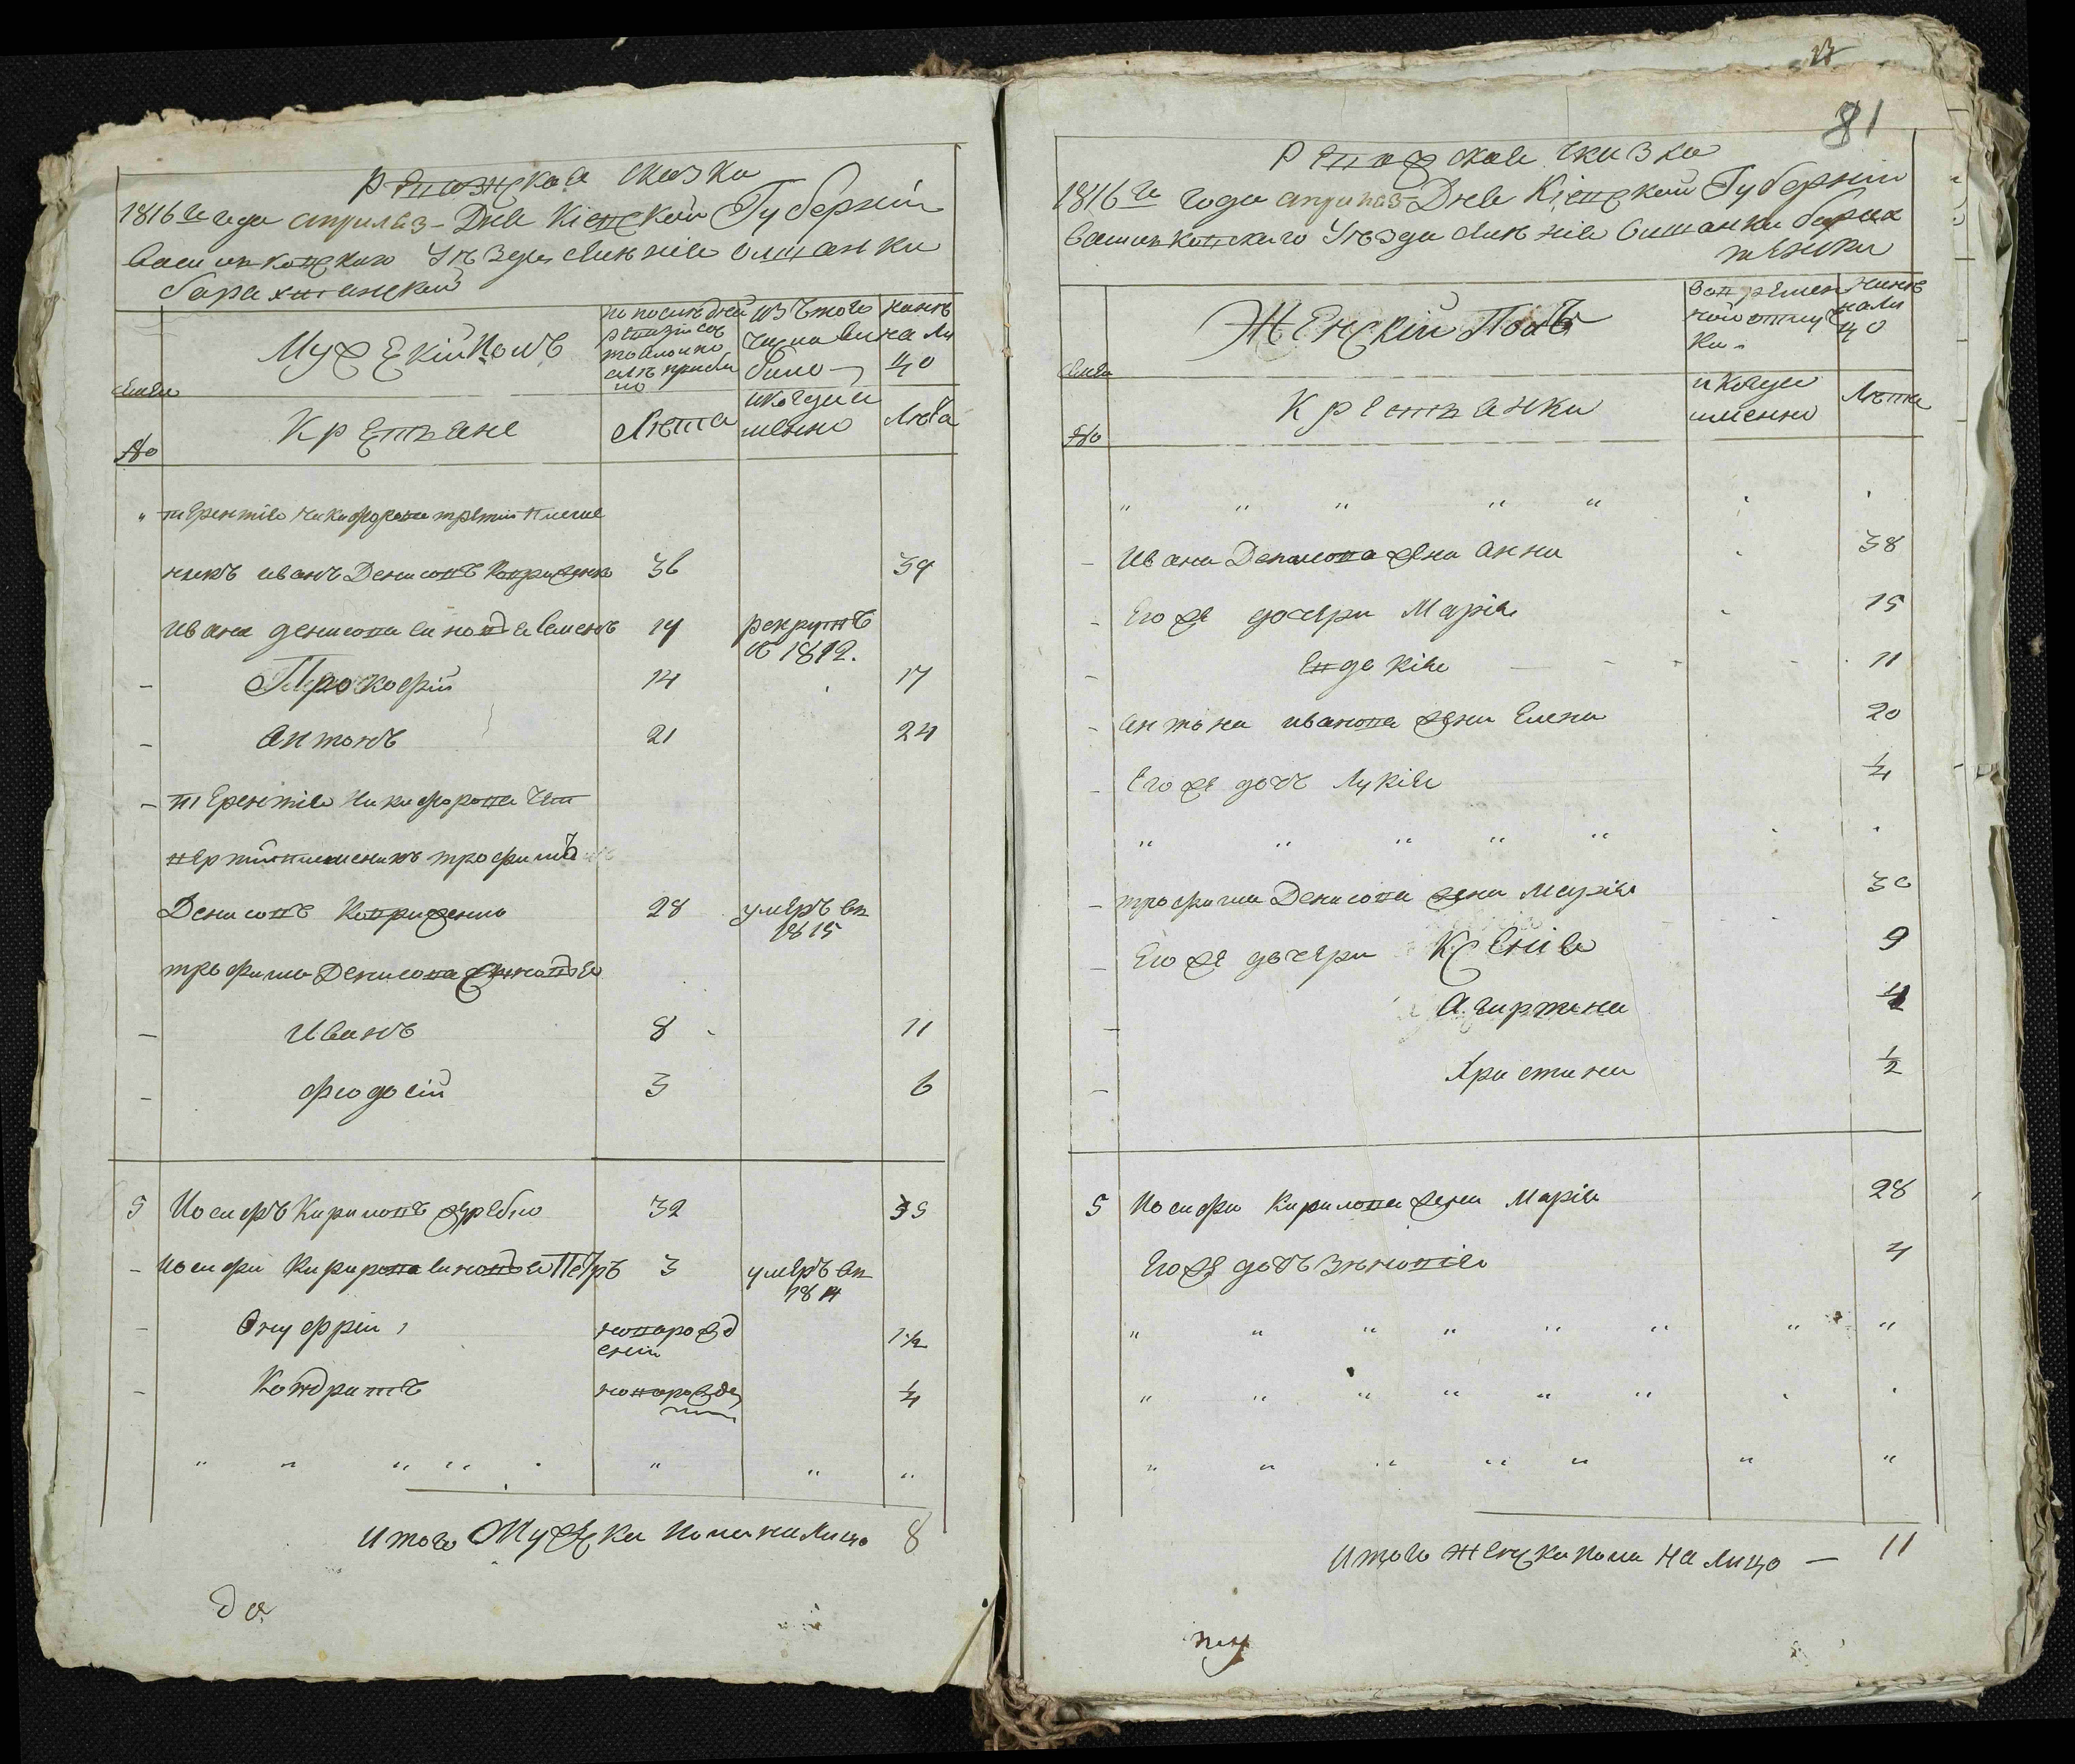 Ревизская сказка
1816го года априля 3 Дня Кіевской Губерніи
Васильковскаго Уезда селенія Олшанки
барахтянской
Семьи
№
Мужескій Полъ
Крестьяне
по последней
ревизіи со
стояло и по
сле прибы
ло
Лета
изъ того
числа вы
было
и когда и
менно
ныне
на ли
цо
Лета
" терентія никифорова третій племе
никъ иванъ Денисовъ Ковриженко 36 39
ивана денисова сыновья Семенъ 19 рекрутъ
в 1812.
Прокофій 14 17
антонъ 21 24
терентія Никифорова чет
вертій племеникъ трофимъ
Денисовъ Ковриженко 28 умеръ въ
1815
трофима Денисова сыновья
иванъ 8 11
феодосій 3 6
5 Иосифъ Кириловъ жеребило 32 35
иосифа Кирилова сыновья Петръ 3 умеръ въ
1814
Онуфрій новорожд
еній 1 1/2
Кондратъ новорожде
ній 1/4
" " " " " " "
итого Мужеска Пола на Лицо 8
да
81
Ревижская сказка
1816го года априля 3 Дня Кіевской Губерніи
Васильковскаго Уезда селенія Олшанки барах
тянской
Семьи
№
Женскій Полъ
Крестьянки
во времен
ной отлуч
ке
и когда
именно
Ныне
нали
цо
Лета
" " " " "
ивана Денисова жена анна 38
Его же дочери Марія 15
Евдокія 11
антона иванова жена Елена 20
Его же дочъ Лукія 1/4
" " " " "
трофима Денисова жена Марія 30
Его же дочери Ксенія 9
Агапитна 4
Христина 1/2
5 Иосифа Кирилова жена Марія 28
Его же дочъ Зеновія 4
" " " " " " " "
" " " " " "
" " " " " " "
итого женска пола на лицо — 11